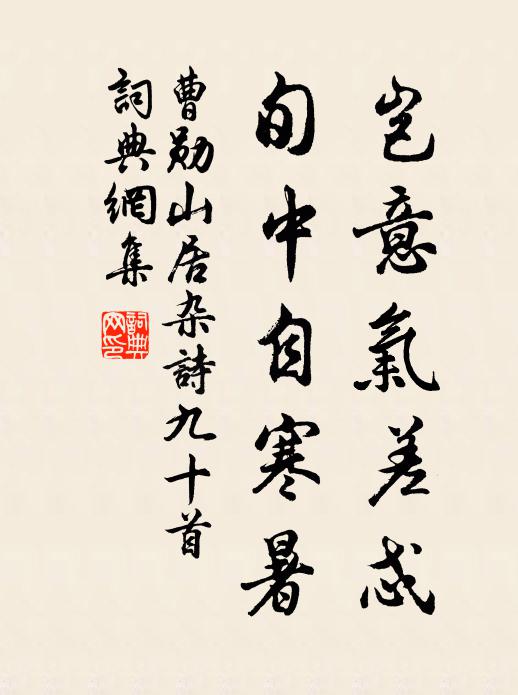 岂意氣差忒
旬中自寒暑
曹勛山居杂詩九十首
詞典網集
詞典网印